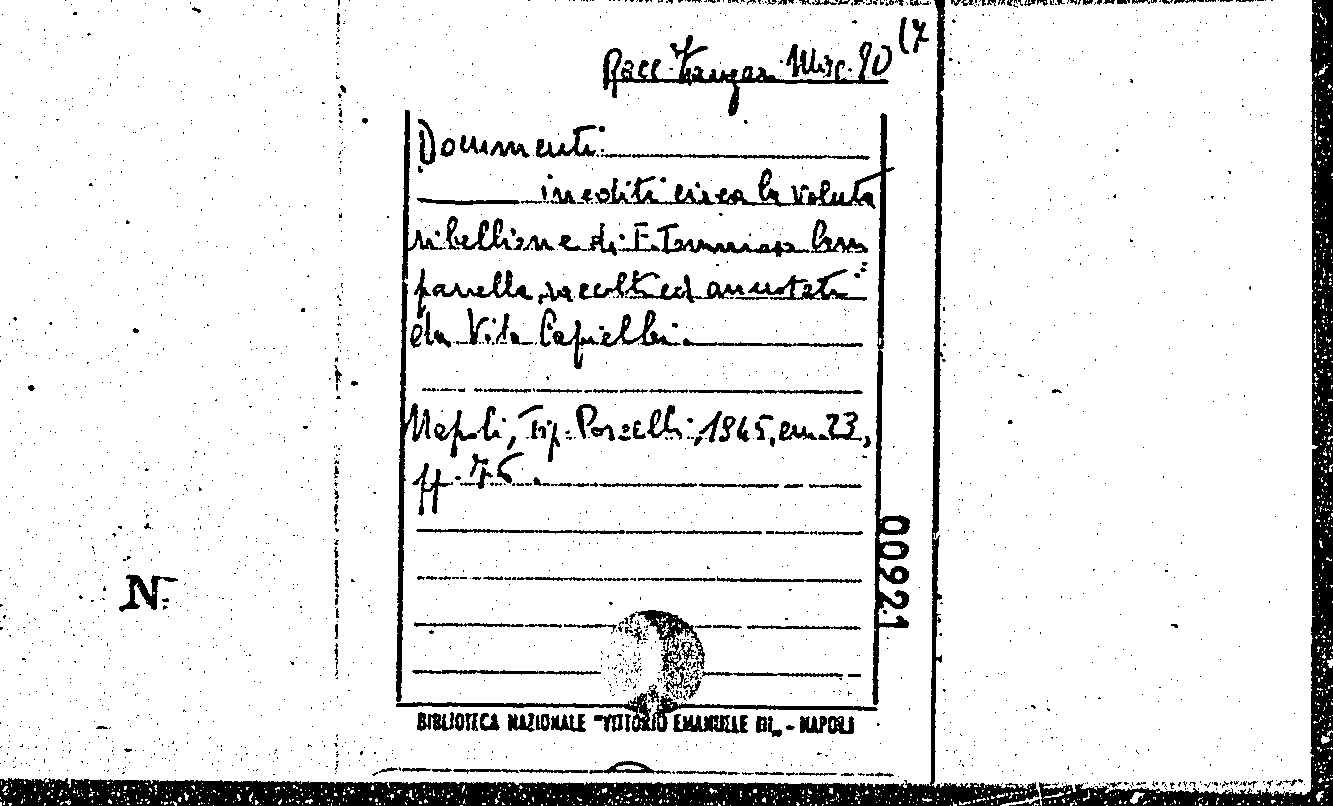 Racc. Zangar. Misc. 90 (7
Documenti
inediti circa la voluta
ribellione di F. Tommaso Cam
panella, raccolti ed annotati
da Vito Capialbi.
Napoli, Tip. Porcelli, 1845, cm. 23,
pp. 76.
00921
N.
BIBLIOTECA NAZIONALE "VITTORIO EMANUELE III„ - NAPOLI